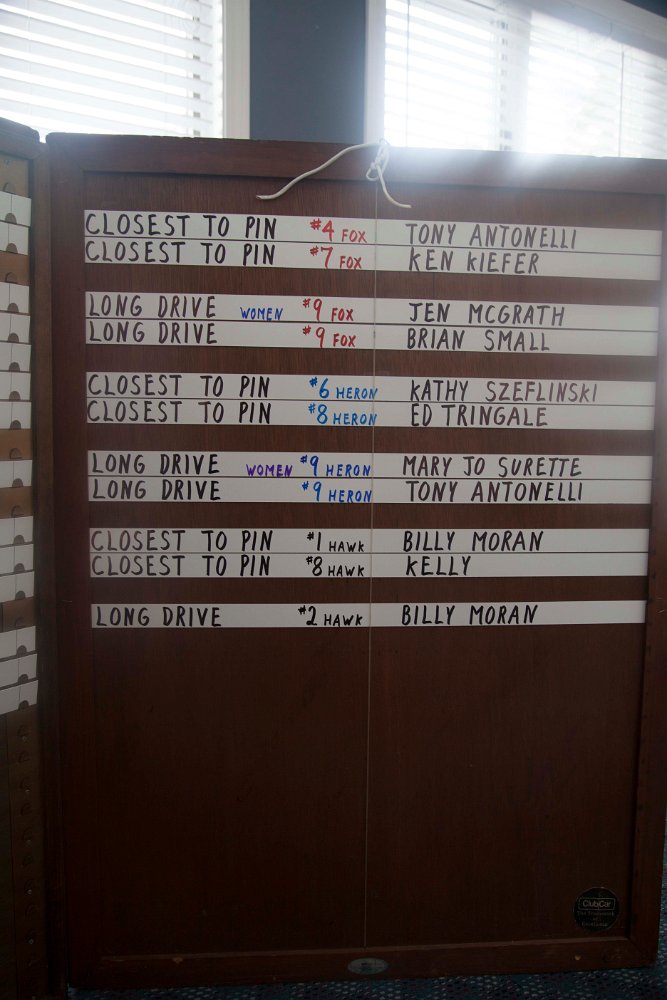 CLOSEST TO PIN #4 FOX TONY ANTONELLI
CLOSEST TO PIN #7 FOX KEN KIEFER
LONG DRIVE WOMEN #9 FOX JEN MCGRATH
LONG DRIVE #9 FOX BRIAN SMALL
CLOSEST TO PIN #6 HERON KATHY SZEFLINSKI
CLOSEST TO PIN #8 HERON ED TRINGALE
LONG DRIVE WOMEN #9 HERON MARY JO SURETTE
LONG DRIVE #9 HERON TONY ANTONELLI
CLOSEST TO PIN #1 HAWK BILLY MORAN
CLOSEST TO PIN #8 HAWK KELLY
LONG DRIVE #2 HAWK BILLY MORAN
Club Car
The Trademark
of
Excellence